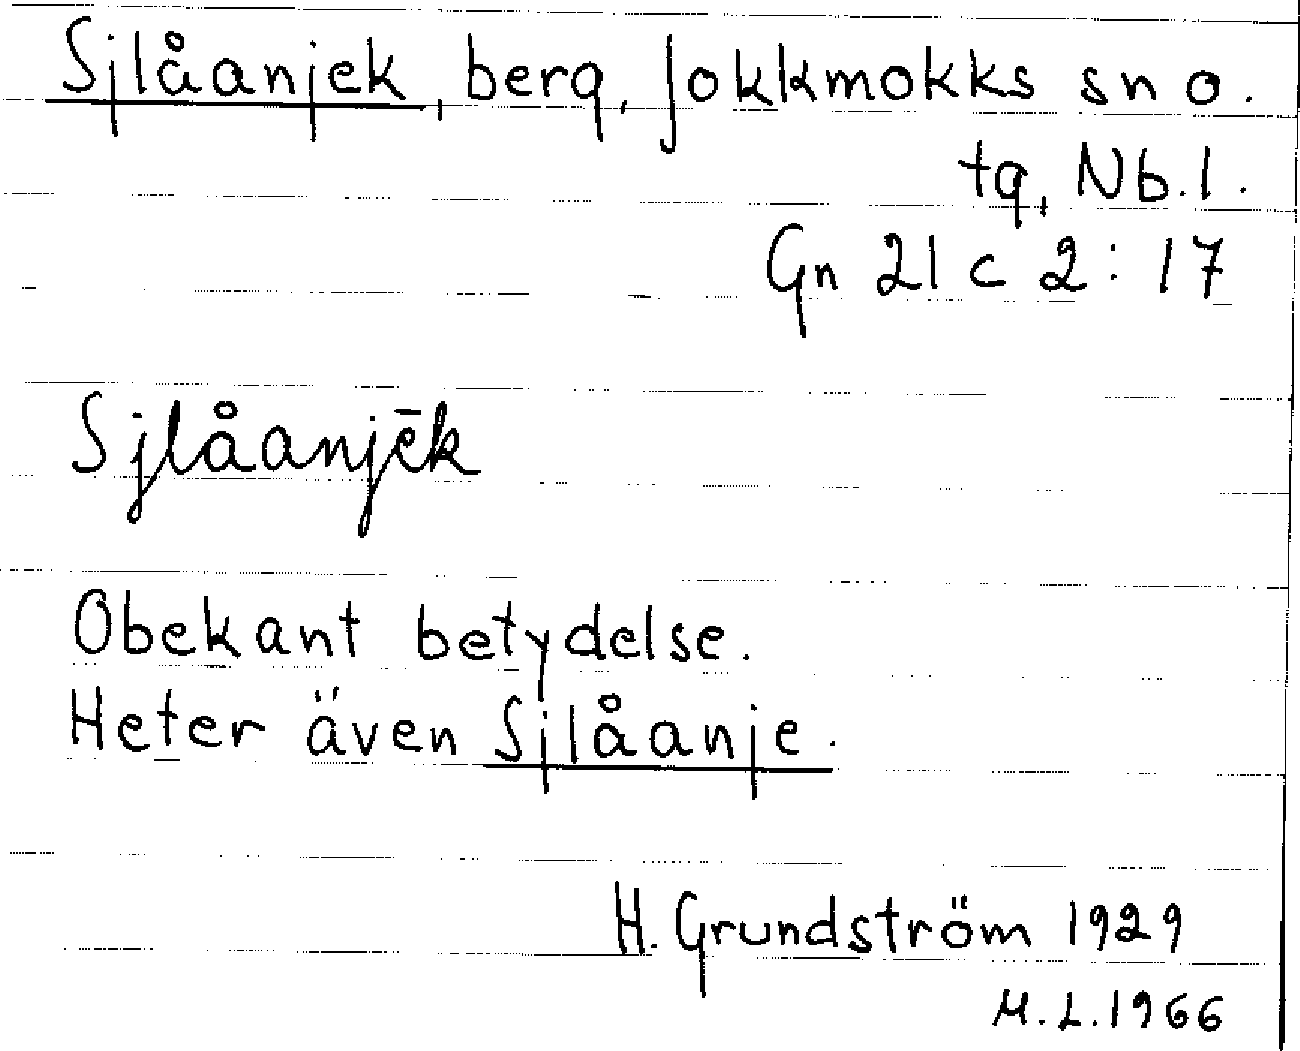 Sjlåanjek, berg, Jokkmokks sn o.
tg, Nb. l.
Gn 21 c 2:17
Sjlåanjēk
Obekant betydelse.
Heter även Sjlåanje.
H. Grundström 1929
M.L. 1966